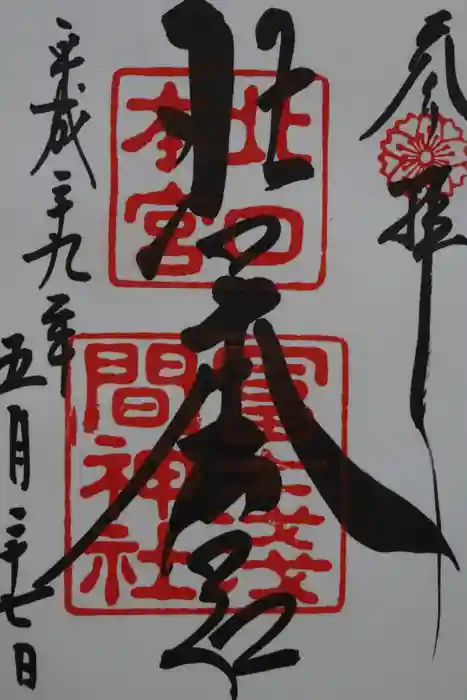 参拝
北口
本宮
冨士浅
間神社
平成二十九年
五月二十七日